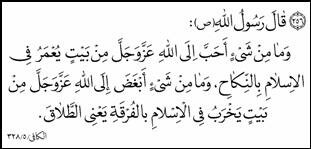 ۲۵۶ قَالَ رَسُولُ اللهِ(ص):
وَمَا مِنْ شَیْءٍ أَحَبَّ إِلَی اللهِ عَزَّوَجَلَّ مِنْ بَیْتٍ یُعْمَرُ فِی
الْاِسْلَامِ بِالنِّکَاحِ، وَمَا مِنْ شَیْءٍ أَبْغَضَ إِلَی اللهِ عَزَّوَجَلَّ مِنْ
بَیْتٍ یَخْرَبُ فِی الْاِسْلَامِ بِالْفُرْقَةِ یَعْنِی الطَّلَاقَ.
الکافی/۵/۳۲۸